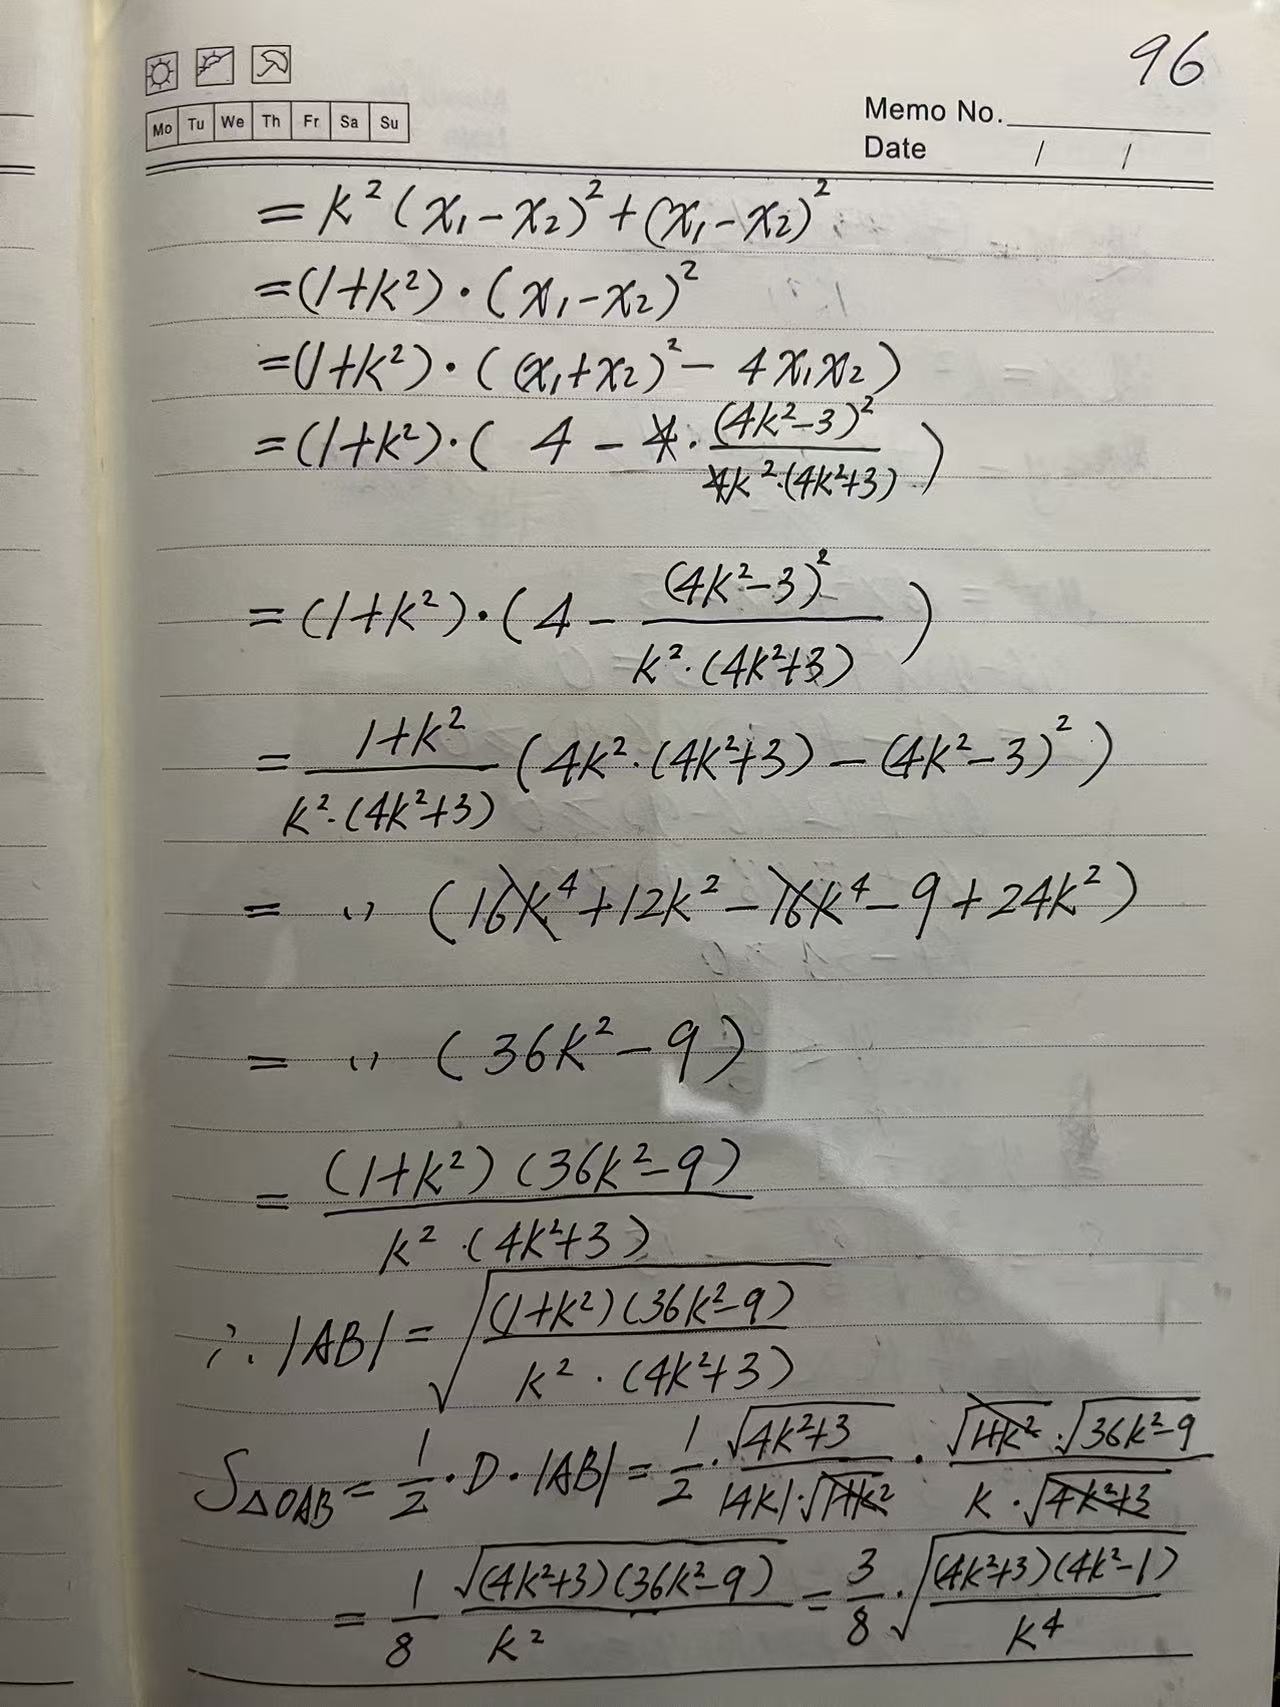 96
Mo Tu We Th Fr Sa Su
Memo No.
Date / /
= k²(x₁-x₂)²+(x₁-x₂)²
=(1+k²)·(x₁-x₂)²
=(1+k²)·((x₁+x₂)²- 4x₁x₂)
=(1+k²)·( 4 - 4·(4k²-3)²/4k²·(4k²+3) )
=(1+k²)·(4 - (4k²-3)²/k²·(4k²+3) )
= 1+k²/k²·(4k²+3) (4k²·(4k²+3)-(4k²-3)²)
= 〃 (16k⁴+12k²-16k⁴-9+24k²)
= 〃 (36k²-9)
= (1+k²)(36k²-9)/k²·(4k²+3)
∴|AB|=√((1+k²)(36k²-9)/k²·(4k²+3))
S△OAB=1/2·D·|AB|=1/2·√(4k²+3)/|4k|·√(1+k²)·√(1+k²)·√(36k²-9)/k·√(4k²+3)
=1/8 √((4k²+3)(36k²-9))/k²=3/8·√((4k²+3)(4k²-1)/k⁴)